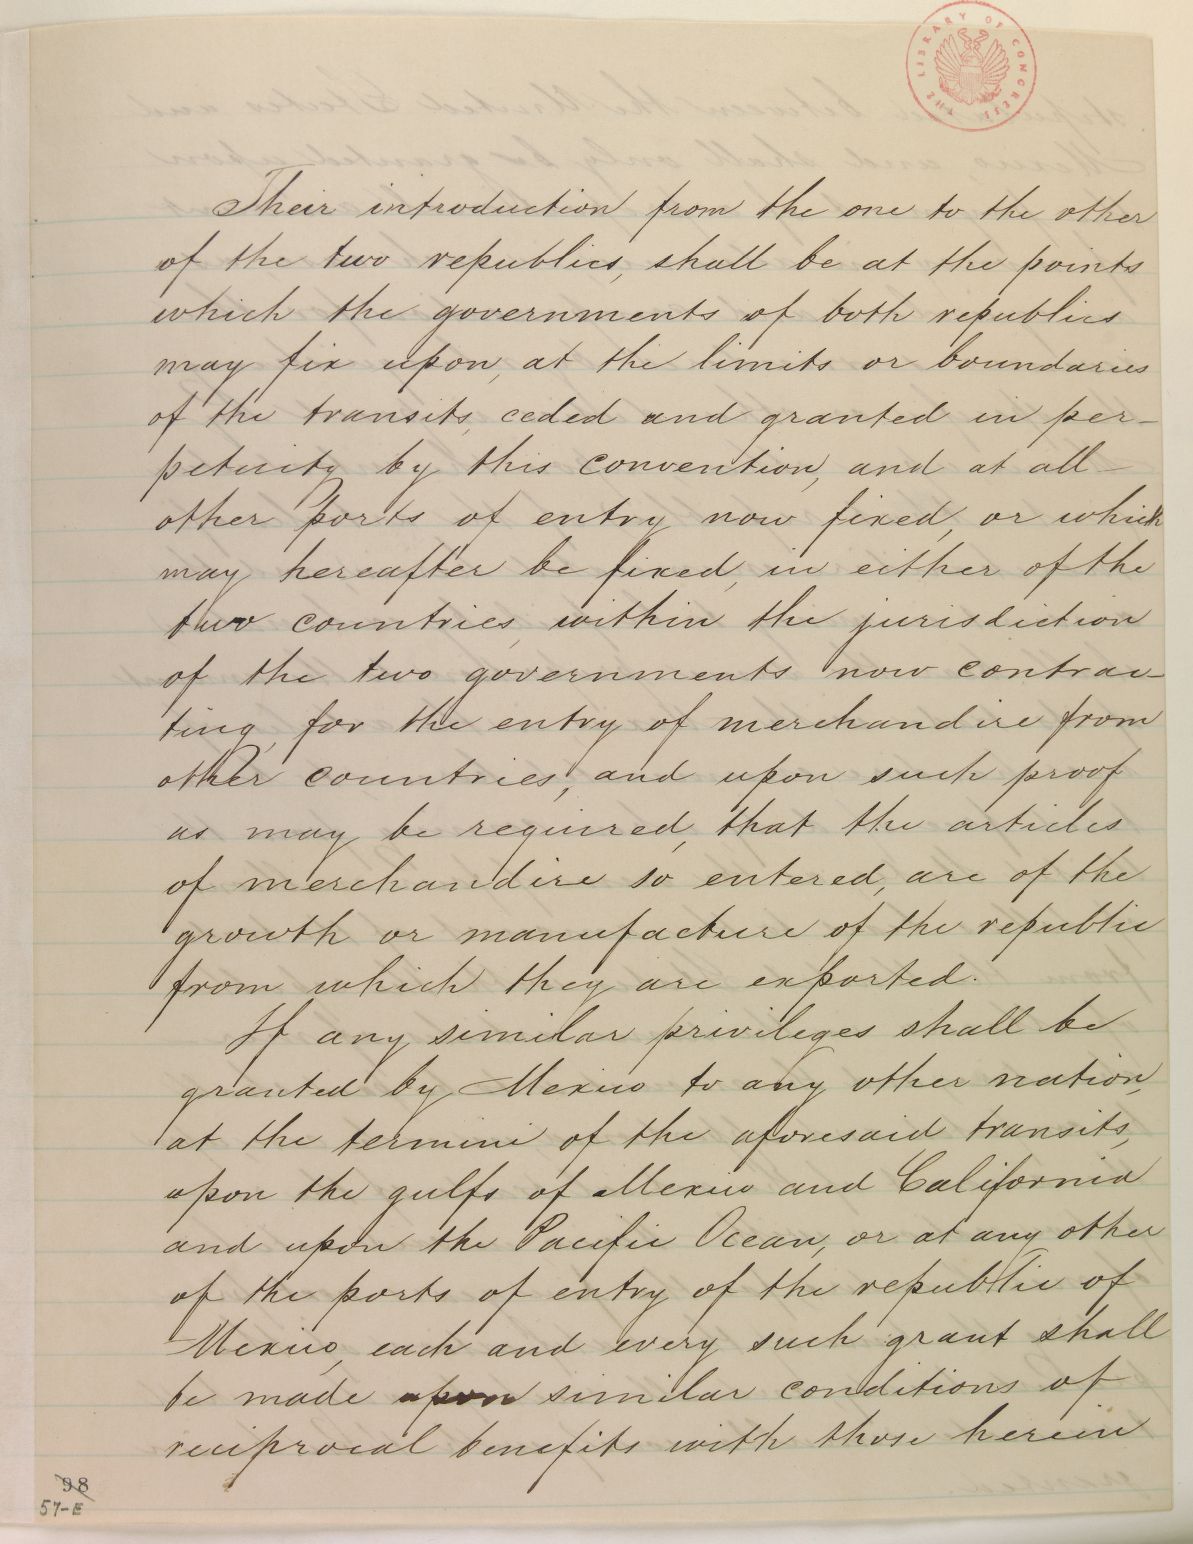 THE LIBRARY OF CONGRESS
Their introduction from the one to the other
of the two republics, shall be at the points
which the governments of both republics
may fix upon, at the limits or boundaries
of the transits, ceded and granted in per-
petuity by this convention, and at all
other ports of entry now fixed, or which
may hereafter be fixed, in either of the
two countries, within the jurisdiction
of the two governments now contrac-
ting, for the entry of merchandise from
other countries, and upon such proof
as may be required, that the articles
of merchandise so entered, are of the
growth or manufacture of the republic
from which they are exported.
If any similar privileges shall be
granted by Mexico to any other nation,
at the termini of the aforesaid transits,
upon the gulfs of Mexico and California
and upon the Pacific Ocean, or at any other
of the ports of entry of the republic of
Mexico, each and every such grant shall
be made upon similar conditions of
reciprocal benefits with those herein
98
57-E